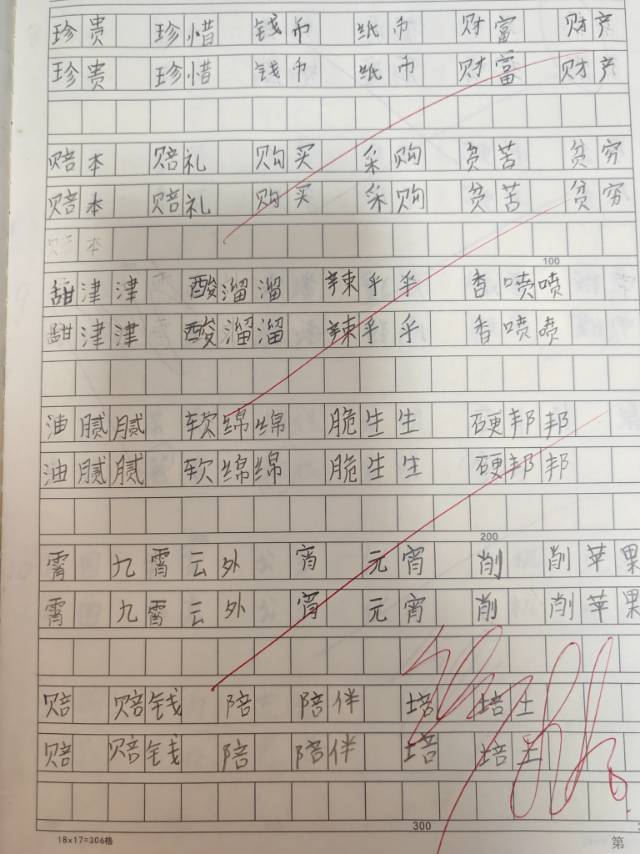 珍贵 珍惜 钱币 纸币 财富 财产
珍贵 珍惜 钱币 纸币 财富 财产
赔本 赔礼 购买 采购 贫苦 贫穷
赔本 赔礼 购买 采购 贫苦 贫穷
100
甜津津 酸溜溜 辣乎乎 香喷喷
甜津津 酸溜溜 辣乎乎 香喷喷
油腻腻 软绵绵 脆生生 硬邦邦
油腻腻 软绵绵 脆生生 硬邦邦
200
霄 九霄云外 宵 元宵 削 削苹果
霄 九霄云外 宵 元宵 削 削苹果
赔 赔钱 陪 陪伴 培 培土
赔 赔钱 陪 陪伴 培 培土
300
18x17=306格 第